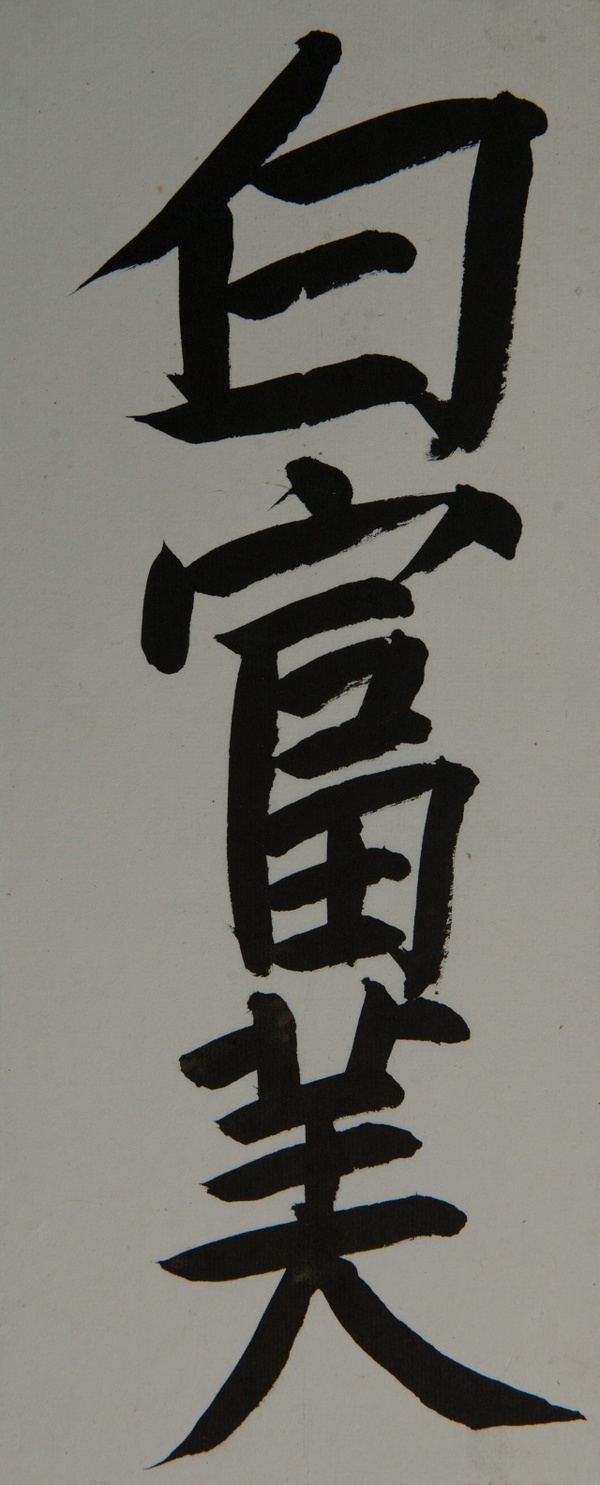 白富美